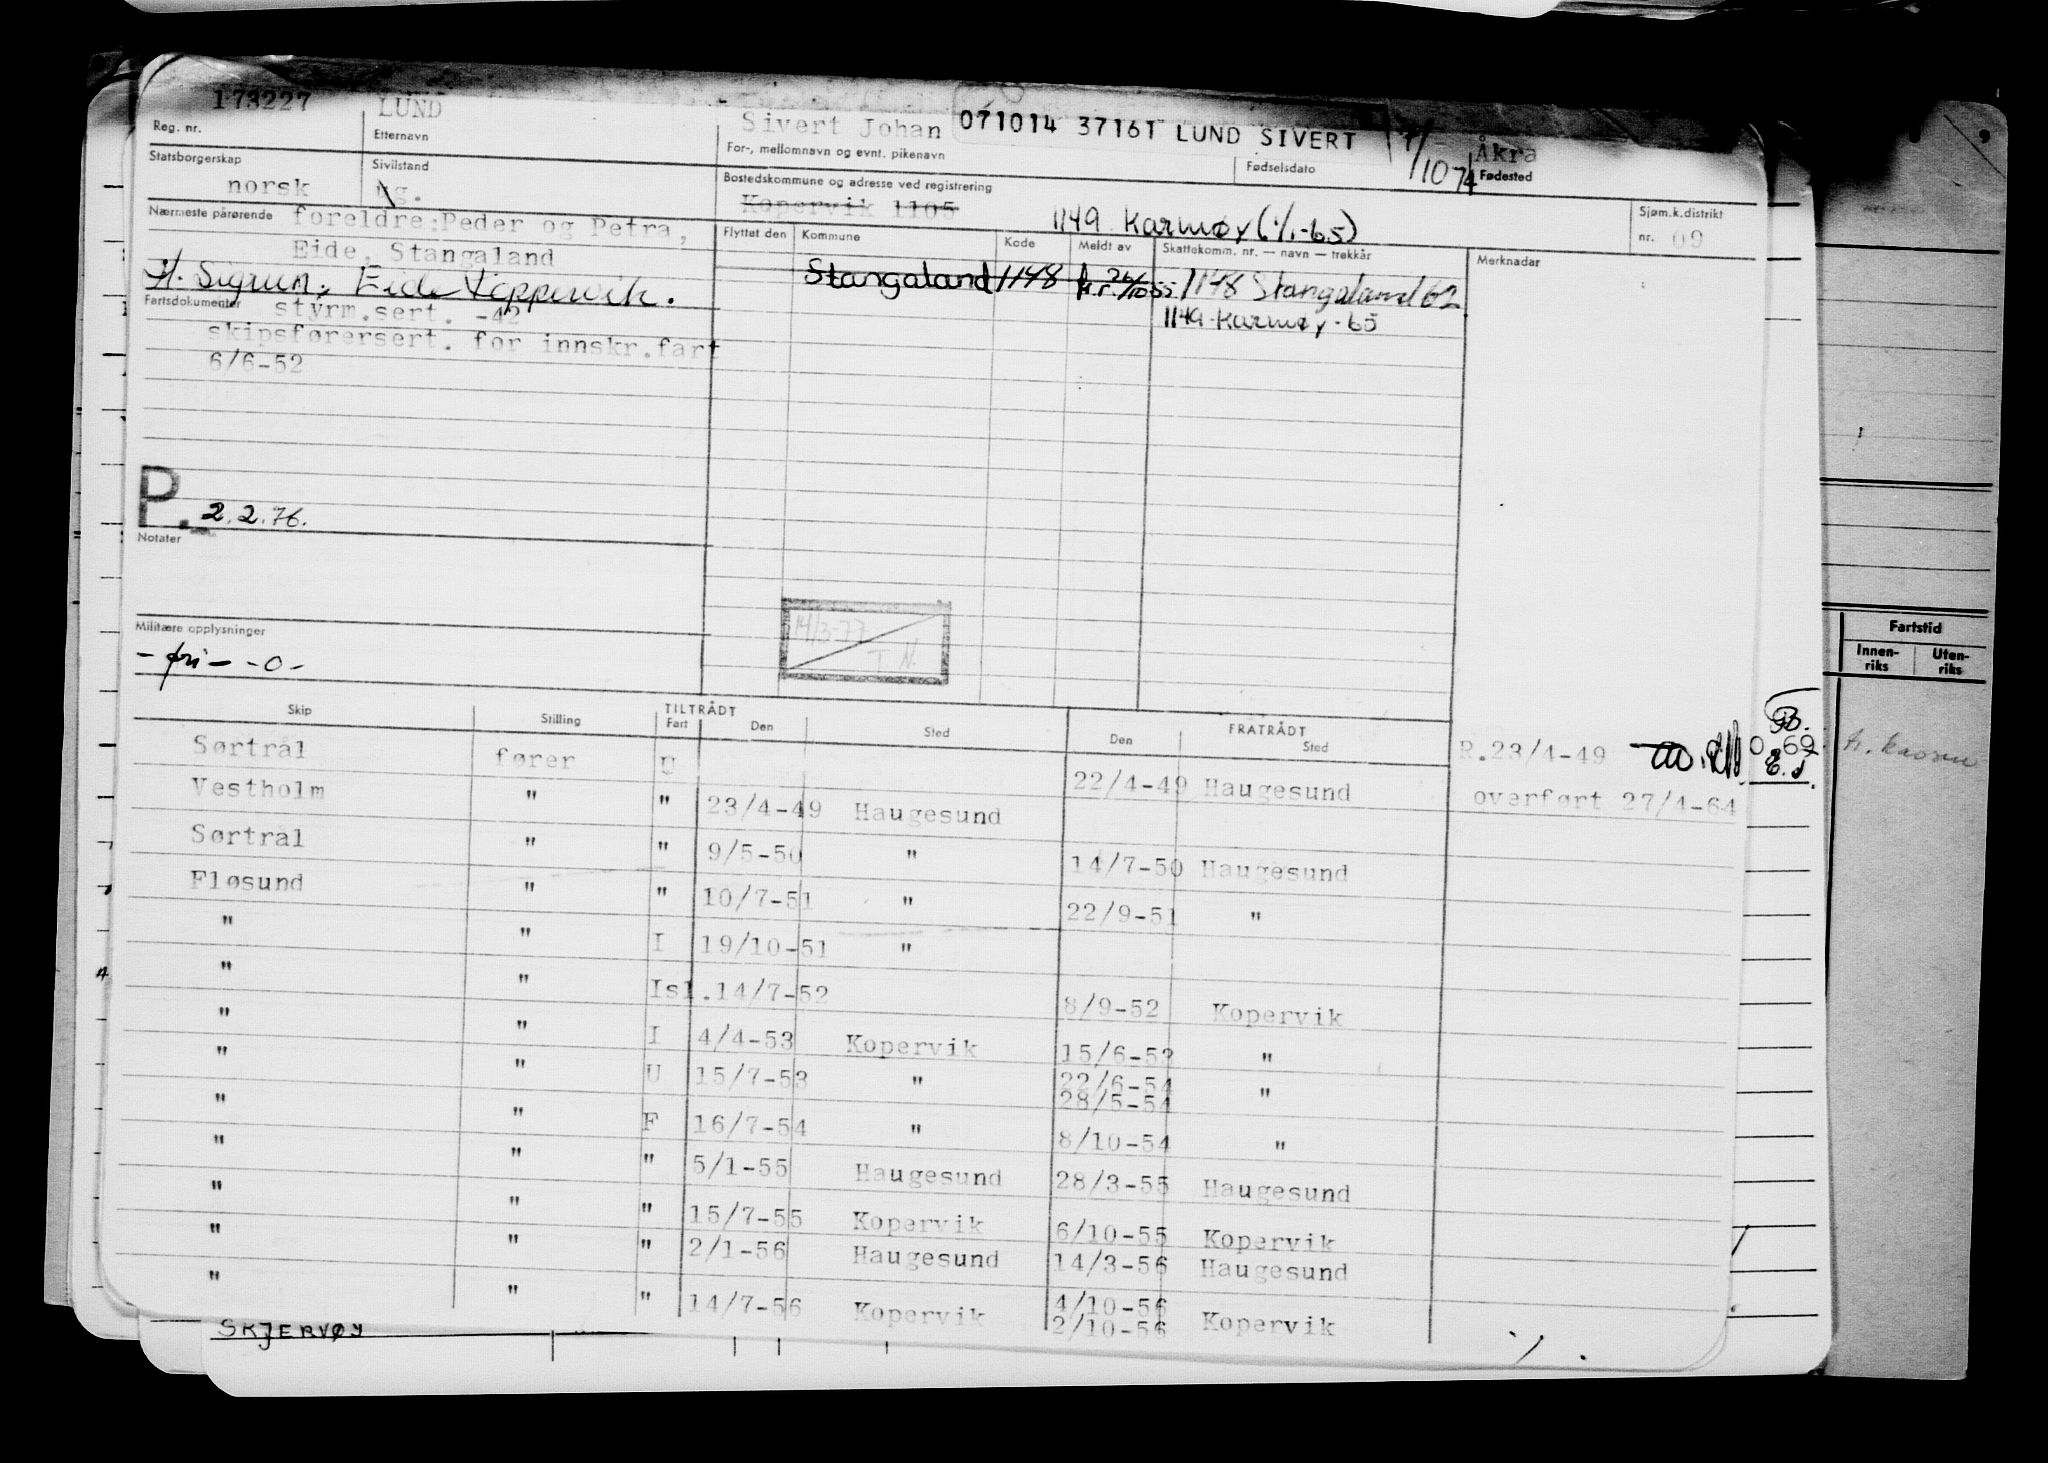 173227 LUND Sivert Johan 071014 37161 LUND SIVERT 7/10 74 Åkra
Reg. nr. Etternavn For-, mellomnavn og evnt. pikenavn Fødselsdato Fødested
Statsborgerskap Sivilstand Bostedskommune og adresse ved registrering
norsk ug. Kopervik 1105 1149 Karmøy (1/1-65) Sjøm.k.distrikt nr. 09
Nærmeste pårørende foreldre:Peder og Petra, Flyttet den Kommune Kode Meldt av Skattekomm. nr. — navn — trekkår Merknadar
Eide, Stangaland
H. Sigrun, Eide Koppervik. Stangaland 1148 26/10 55 1148 Stangaland 62
Fartsdokumenter styrm.sert. -42 1149 Karmøy - 65
skipsførersert. for innskr.fart
6/6-52
P. 2.2.76.
Notater
14/3-77
T.N.
Militære opplysninger
- fri - - 0 -
Skip Stilling TILTRÅDT Fart Den Sted FRATRÅDT Den Sted
Sørtrål fører U 22/4-49 Haugesund R.23/4-49
Vestholm " " 23/4-49 Haugesund overført 27/4-64
Sørtrål " " 9/5-50 " 14/7-50 Haugesund
Fløsund " " 10/7-51 " 22/9-51 "
" " I 19/10-51 "
" " Isl.14/7-52 8/9-52 Kopervik
" " I 4/4-53 Kopervik 15/6-53 "
" " U 15/7-53 " 22/6-54 "
28/5-54
" " F 16/7-54 " 8/10-54 "
" " " 5/1-55 Haugesund 28/3-55 Haugesund
" " " 15/7-55 Kopervik 6/10-55 Kopervik
" " " 2/1-56 Haugesund 14/3-56 Haugesund
" " " 14/7-56 Kopervik 4/10-56 Kopervik
2/10-56
SKJERVØY
Fartstid
Innen-riks Uten-riks